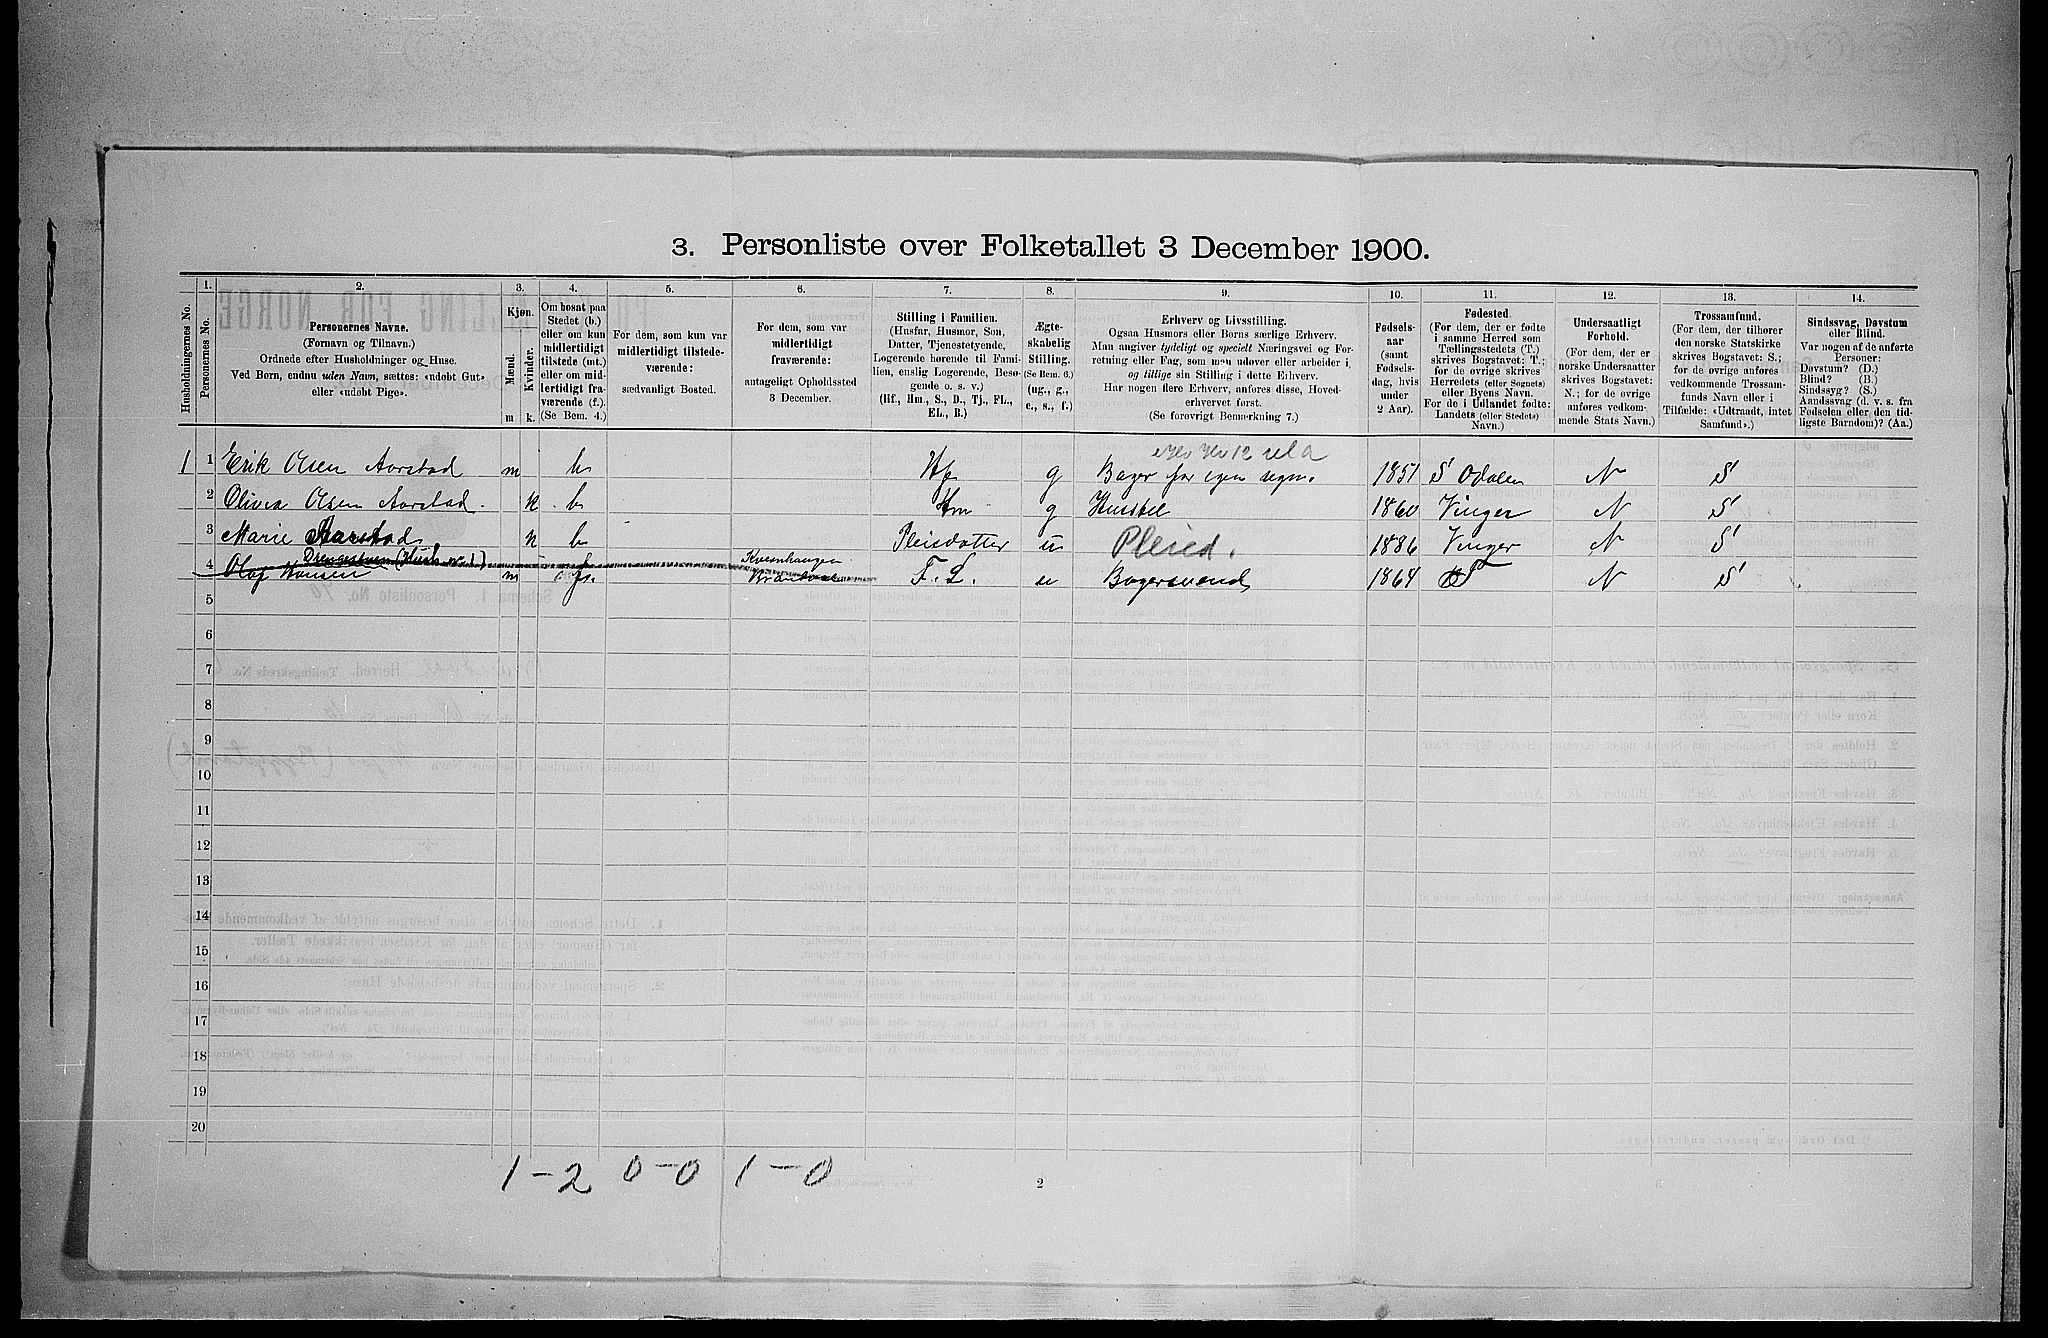 3. Personliste over Folketallet 3 December 1900.
Husholdningernes No.
1.
Personernes No.
2.
Personernes Navne.
(Fornavn og Tilnavn.)
Ordnede efter Husholdninger og Huse.
Ved Børn, endnu uden Navn, sættes: «udøbt Gut»
eller «udøbt Pige».
3.
Kjøn.
Mænd.
Kvinder.
m k.
4.
Om bosat paa
Stedet (b.)
eller om kun
midlertidigt
tilstede (mt.)
eller om mid-
lertidigt fra-
værende (f.).
(Se Bem. 4.)
5.
For dem, som kun var
midlertidigt tilstede-
værende:
sædvanligt Bosted.
6.
For dem, som var
midlertidigt
fraværende:
antageligt Opholdssted
3 December.
7.
Stilling i Familien.
(Husfar, Husmor, Søn,
Datter, Tjenestetyende,
Logerende hørende til Fami-
lien, enslig Logerende, Besø-
gende o. s. v.)
(Hf., Hm., S., D., Tj., FL.,
EL., B.)
8.
Ægte-
skabelig
Stilling.
(Se Bem. 6.)
(ug., g.,
e., s., f.)
9.
Erhverv og Livsstilling.
Ogsaa Husmors eller Børns særlige Erhverv.
Man angiver tydeligt og specielt Næringsvei og For-
retning eller Fag, som men udøver eller arbeider i,
og tillige sin Stilling i dette Erhverv.
Har nogen flere Erhverv, anføres disse, Hoved-
erhvervet først.
(Se forøvrigt Bemerkning 7.)
10.
Fødsels-
aar
(samt
Fødsels-
dag, hvis
under
2 Aar).
11.
Fødested.
(For dem, der er fødte
i samme Herred som
Tællingsstedets (T.)
skrives Bogstavet: T.;
for de øvrige skrives
Herredets (eller Sognets)
eller Byens Navn.
For de i Udlandet fødte:
Landets (eller Stedets)
Navn.)
12.
Undersaatligt
Forhold.
(For dem, der er
norske Undersaatter
skrives Bogstavet:
N.; for de øvrige
anføres vedkom-
mende Stats Navn.)
13.
Trossamfund.
(For dem, der tilhører
den norske Statskirke
skrives Bogstavet: S.;
for de øvrige anføres
vedkommende Trossam-
funds Navn eller i
Tilfælde: «Udtraadt, intet
Samfund».)
14.
Sindssvag, Døvstum
eller Blind.
Var nogen af de anførte
Personer:
Døvstum? (D.)
Blind? (B.)
Sindssyg? (S.)
Aandssvag (d. v. s. fra
Fødselen eller den tid-
ligste Barndom)? (Aa.)
1 1 Erik Olsen Aarstad m b Hf g Bager for egen regn. 1851 S Odalen N S
2 Olivia Olsen Aarstad. k b Hm g Husstel 1860 Vinger N S
3 Marie Aarstad k b Pleiedatter u Pleied. 1886 Vinger N S
4 Olaf Hansen m f. F. L. u Bagersvend 1864 N S
5
6
7
8
9
10
11
12
13
14
15
16
17
18
19
20
1-2 0-0 1-0
2